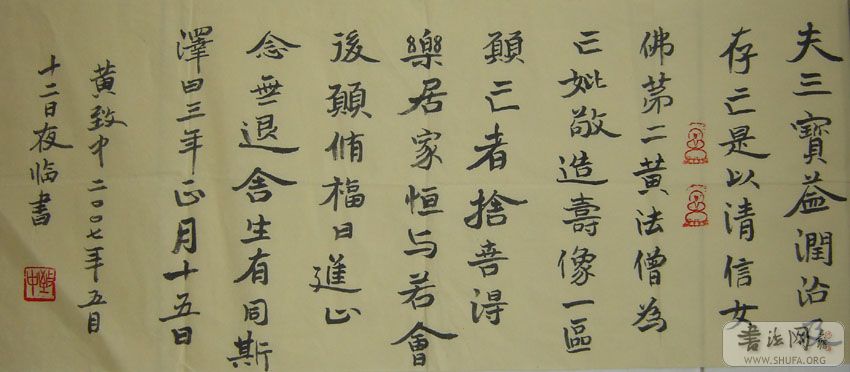 夫三寶益潤洽及
存亡是以清信女
佛苐二黄法僧為
亡妣敬造壽像一區
願亡者捨善淂
樂居家恒与若會
後願脩楅日進止
念無退舍生有同斯
澤曰三年正月十五日
黄致中二〇〇七年五月
十二日夜临書
致中
書法网
WWW.SHUFA.ORG